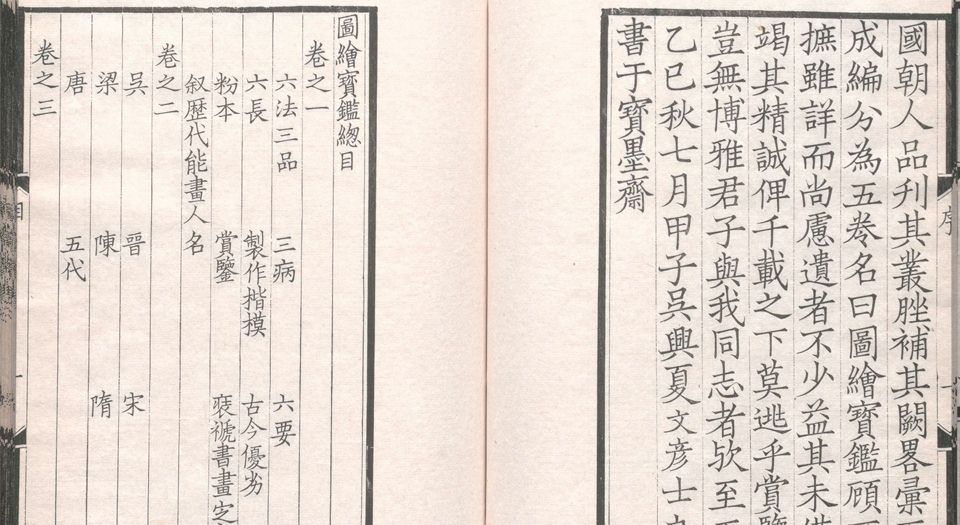 國朝人品刋其叢脞補其闕畧彙
成編分為五卷名曰圖繪寶鑑頋
摭雖詳而尚慮遺者不少益其未備
竭其精誠俾千載之下莫逃乎賞鑒
豈無博雅君子與我同志者欤至
乙巳秋七月甲子吳興夏文彦士
書于寶墨齋
序
圖繪寶鑑緫目
卷之一
六法三品 三病 六要
六長 製作揩模 古今優劣
粉本 賞鑒 裵褫書畫定
叙歴代能畫人名
卷之二
吳 晋 宋
梁 陳 隋
唐 五代
卷之三
目